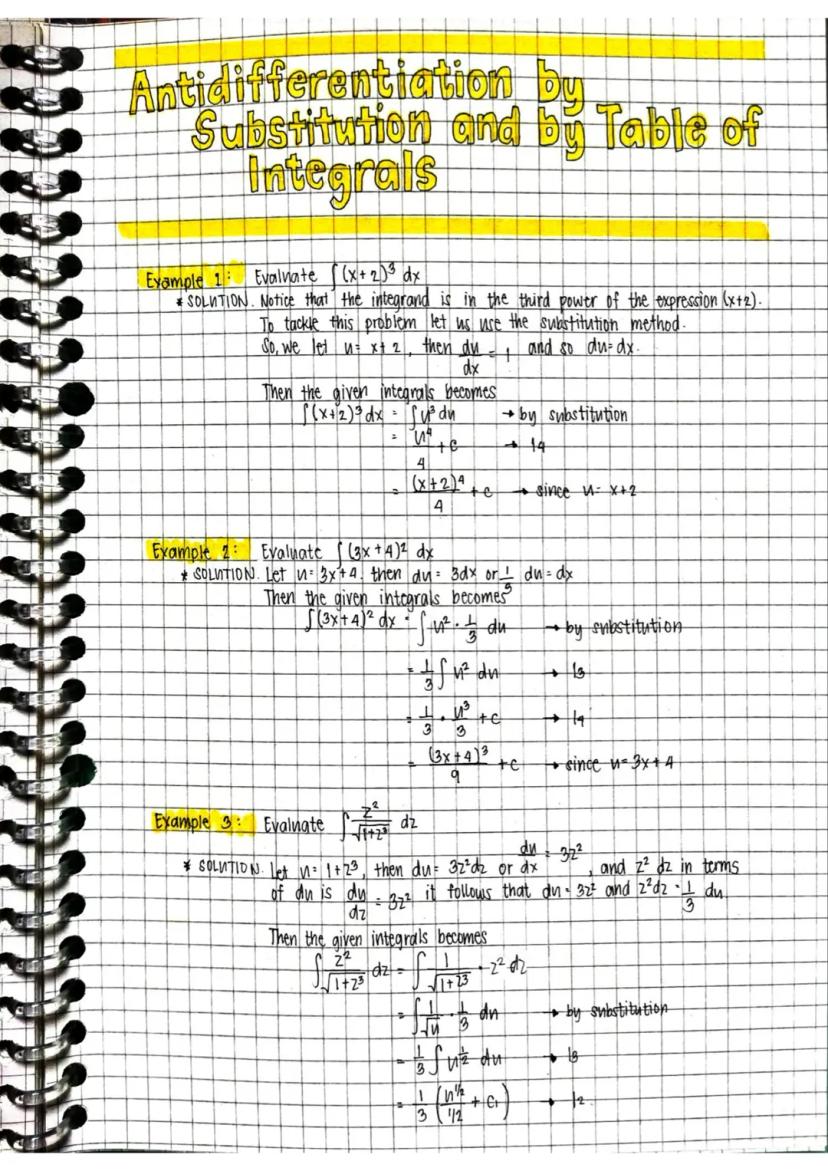 Antidifferentiation by
Substitution and by Table of
Integrals
Example 1: Evaluate ∫(x+2)³ dx
* SOLUTION. Notice that the integrand is in the third power of the expression (x+2).
To tackle this problem let us use the substitution method.
So, we let u= x+2, then du/dx = 1 and so du=dx.
Then the given integrals becomes
∫(x+2)³ dx = ∫u³ du → by substitution
= u⁴/4 + c → 14
= (x+2)⁴/4 + c → since u= x+2
Example 2: Evaluate ∫(3x+4)² dx
* SOLUTION. Let u= 3x+4. then du= 3dx or 1/3 du=dx
Then the given integrals becomes
∫(3x+4)² dx = ∫u² · 1/3 du → by substitution
= 1/3 ∫u² du → 13
= 1/3 · u³/3 + c → 14
= (3x+4)³/9 + c → since u=3x+4
Example 3: Evaluate ∫ z²/√1+z³ dz
* SOLUTION. Let u= 1+z³, then du= 3z²dz or du/dx = 3z², and z² dz in terms
of du is du/dz = 3z² it follows that du= 3z² and z²dz = 1/3 du
Then the given integrals becomes
∫ z²/√1+z³ dz = ∫ 1/√1+z³ · z² dz
= ∫ 1/√u · 1/3 du → by substitution
= 1/3 ∫ u^1/2 du → 13
= 1/3 (u^1/2/1/2 + C₁) → 12